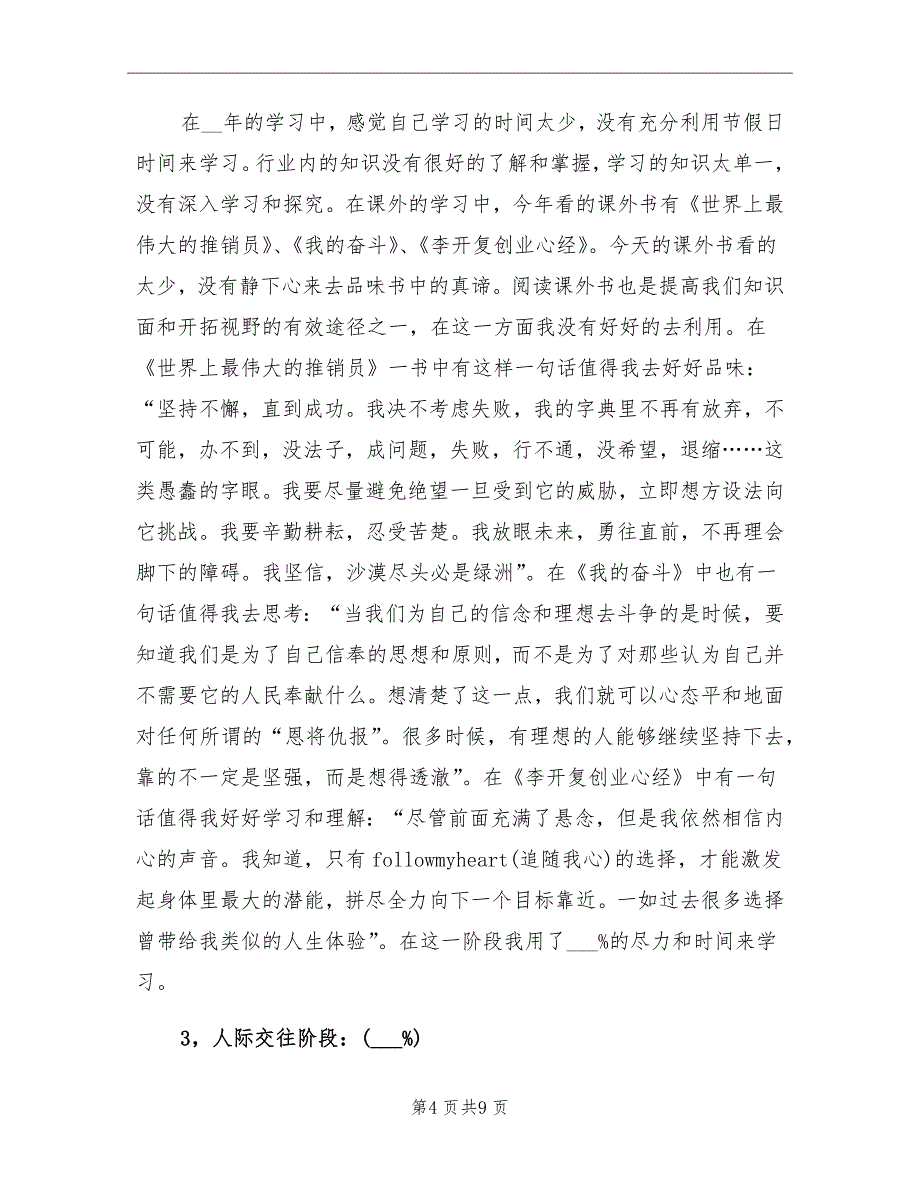 在__年的学习中，感觉自己学习的时间太少，没有充分利用节假日
时间来学习。行业内的知识没有很好的了解和掌握，学习的知识太单一，
没有深入学习和探究。在课外的学习中，今年看的课外书有《世界上最
伟大的推销员》、《我的奋斗》、《李开复创业心经》。今天的课外书看的
太少，没有静下心来去品味书中的真谛。阅读课外书也是提高我们知识
面和开拓视野的有效途径之一，在这一方面我没有好好的去利用。在
《世界上最伟大的推销员》一书中有这样一句话值得我去好好品味：
“坚持不懈，直到成功。我决不考虑失败，我的字典里不再有放弃，不
可能，办不到，没法子，成问题，失败，行不通，没希望，退缩……这
类愚蠢的字眼。我要尽量避免绝望一旦受到它的威胁，立即想方设法向
它挑战。我要辛勤耕耘，忍受苦楚。我放眼未来，勇往直前，不再理会
脚下的障碍。我坚信，沙漠尽头必是绿洲”。在《我的奋斗》中也有一
句话值得我去思考：“当我们为自己的信念和理想去斗争的是时候，要
知道我们是为了自己信奉的思想和原则，而不是为了对那些认为自己并
不需要它的人民奉献什么。想清楚了这一点，我们就可以心态平和地面
对任何所谓的“恩将仇报”。很多时候，有理想的人能够继续坚持下去，
靠的不一定是坚强，而是想得透澈”。在《李开复创业心经》中有一句
话值得我好好学习和理解：“尽管前面充满了悬念，但是我依然相信内
心的声音。我知道，只有followmyheart(追随我心)的选择，才能激发
起身体里最大的潜能，拼尽全力向下一个目标靠近。一如过去很多选择
曾带给我类似的人生体验”。在这一阶段我用了___%的尽力和时间来学
习。
3，人际交往阶段：(___%)
第4 页共9 页